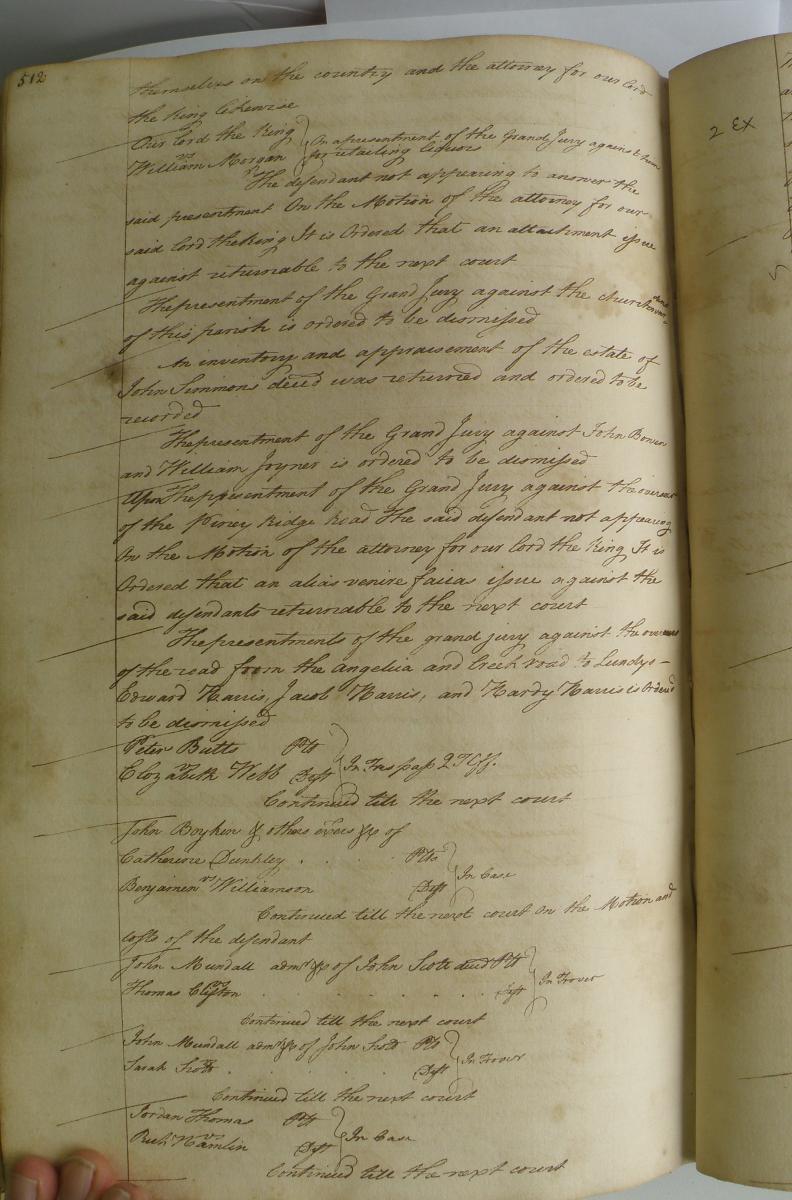 512
themselves on the country and the attorney for our lord
the king likewise
Our lord the King
vs
William Morgan
On a presentment of the Grand Jury against him
for retailing liquors
The defendant not appearing to answer the
said presentment On the Motion of the attorney for our
said lord the King It is Ordered that an attachment issue
against returnable to the next court
The presentment of the Grand Jury against the church
of this parish is ordered to be dismissed
An inventory and appraisement of the estate of
John Simmons decd was returned and ordered to be
recorded
The presentment of the Grand Jury against John Bowen
and William Joyner is ordered to be dismissed
Upon The presentment of the Grand Jury against the overseer
of the Piney Ridge Road The said defendant not appearing
On the Motion of the attorney for our lord the King It is
Ordered that an alias venire facias issue against the
said defendants returnable to the next court
The presentments of the grand jury against the overseers
of the road from the angelica and Creek road to Lundys
Edward Harris, Jacob Harris, and Hardy Harris is Ordered
to be dismissed
Peter Butts Plt
vs
Elizabeth Webb Deft
In Trespass
Continued till the next court
John Boykin & others exers &c of
Catherine Dunkley . . . Plts
vs
Benjamen Williamson Deft
In Case
Continued till the next court on the Motion and
costs of the defendant
John Mundall admr &c of John Scott decd Plt
vs
Thomas Clifton . . . . . Deft
In Trover
Continued till the next court
John Mundall admr &c of John Scott Plt
vs
Sarah Scott . . . . Deft
In Trover
Continued till the next court
Jordan Thomas Plt
vs
Richd Hamlin Deft
In Case
Continued till the next court
2 Ex